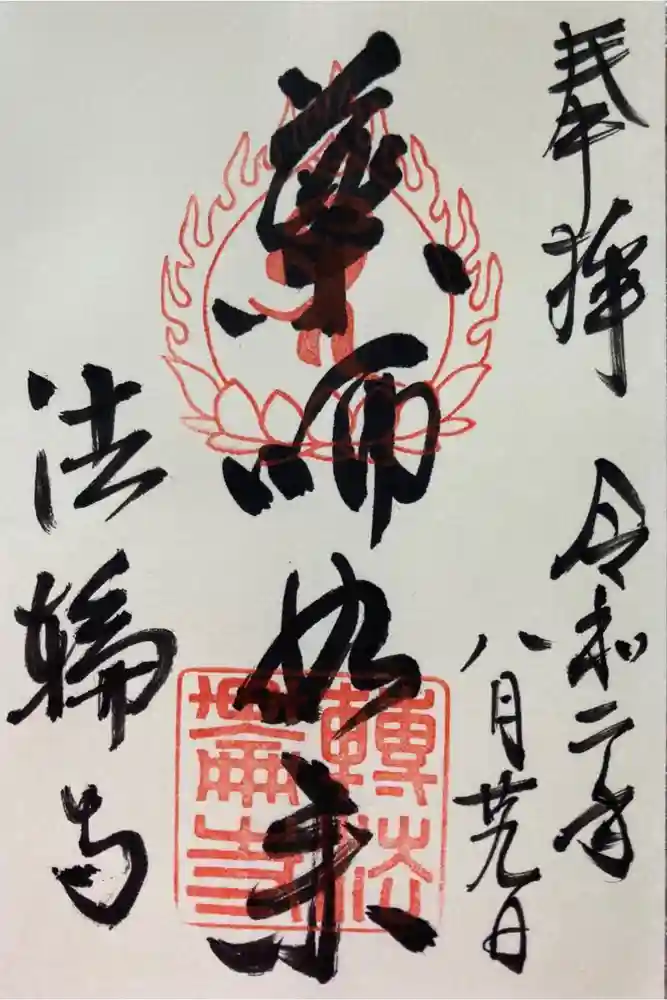 奉拝
令和二年
八月廿九日
薬師如来
法輪寺
轉法
輪寺